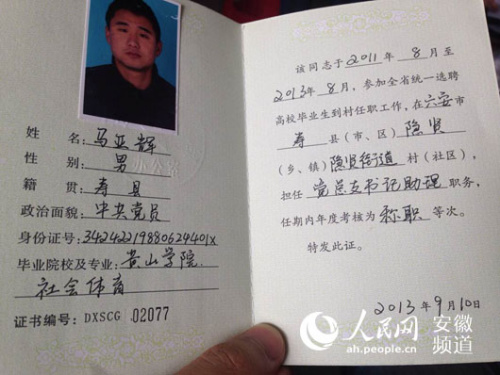 姓 名:马亚辉
性 别:男
籍 贯:寿县
政治面貌:中共党员
身份证号:34242219880624401X
毕业院校及专业:黄山学院
社会体育
证书编号:DXSCG 02077
该同志于2011年8月至
2013年8月,参加全省统一选聘
高校毕业生到村任职工作,在六安市
寿县(市、区)隐贤
(乡、镇)隐贤街道村(社区),
担任党总支书记助理职务,
任期内年度考核为称职等次。
特发此证。
2013年9月10日
人民网 安徽
频道
ah.people.cn